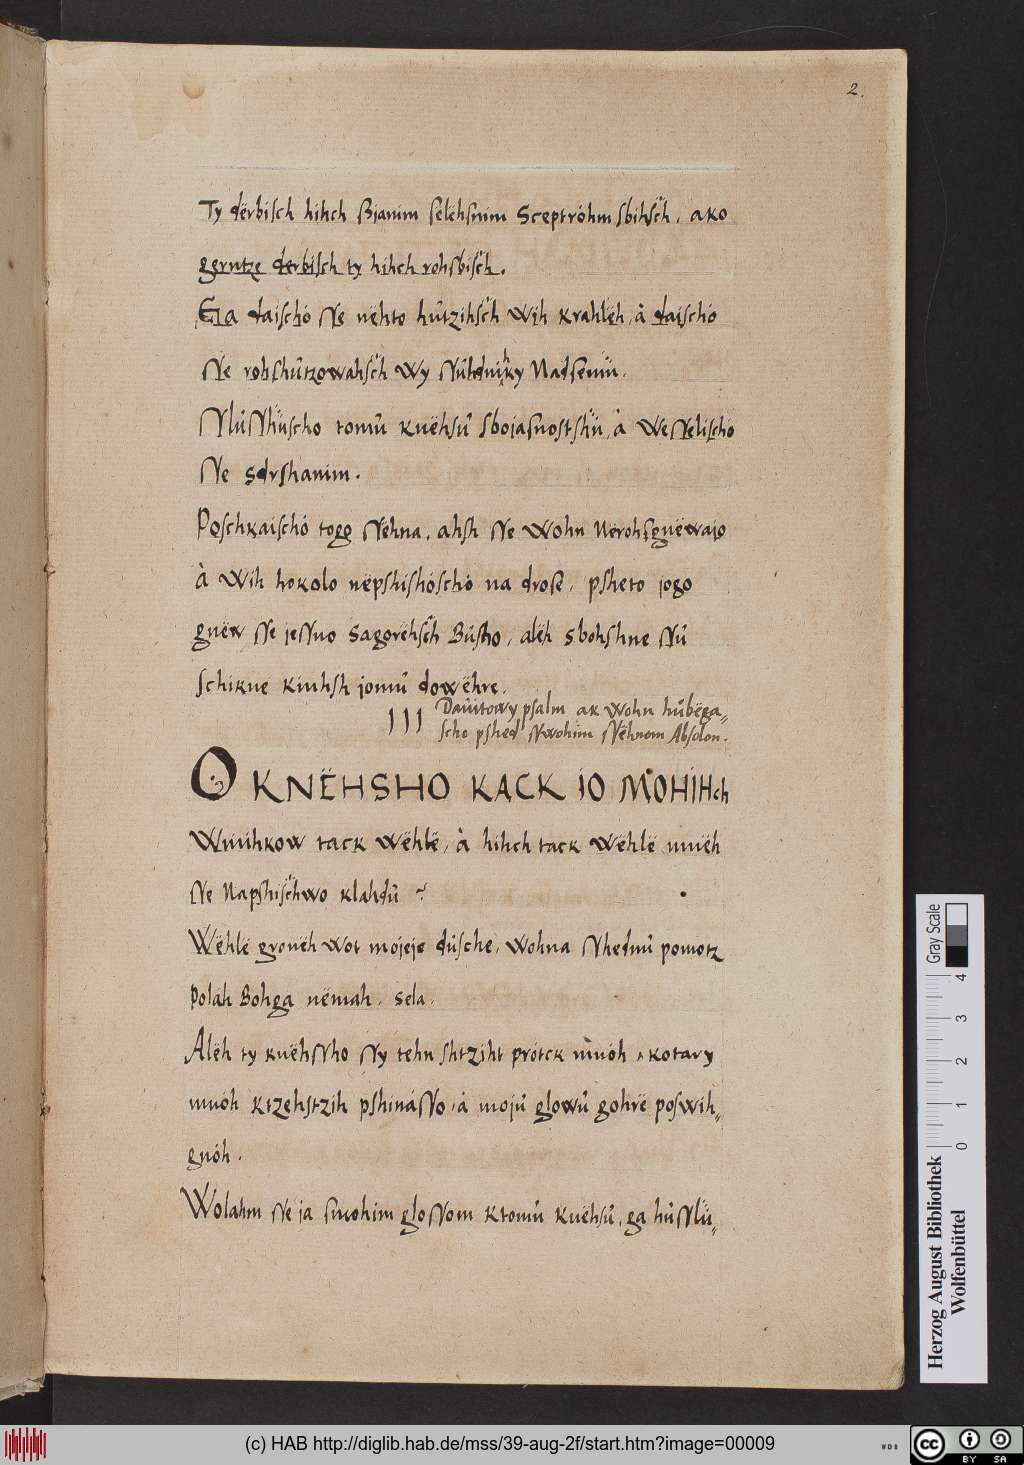 2.
Ty dërbisch hihch Bjanim selëhsnim Sceptróhm sbihsc̈h, ako
gerntze derbisch ty hihch rohsbisc̈h.
Ela daischó Se nëhto hůtzihsc̈h Wih krahlëh, à daischó
Se robshůtzowahsc̈h Wy Sůhdnihky Nadsemü.
SlůShüscho tomů knëhsů sbojasnostshü, à WeSelischo
Se sdrshanim.
Poschkaischó togo Sëhna, ahsh Se Wohn Nërohsgnëwajo
à Wih hokolo nëpshishóschó na drose, psheto jogo
gnëw Se jeSno sagorëhsc̈h Bůsho, alëh sbohshne Sů
schikne kiuhsh jomů dowëhre.
III Dawitowy psalm ak Wohn hůbëga„
scho pshed Swohim Sëhnom Absolon.
O KNËHSHO KACK IO MOHIHch
Winihkow tack wëhlë, à hihch tack Wëhlë mnëh
Se Napshisc̈hwo klahdů ~
Wëhlë gronëh Wot mojeje důsche, Wohna Shednů pomotz
Polah Bohga nëmah. Sela.
Alëh ty knëhSho Sy tehn shtziht prótck mnóh, kotary
mnóh ktzehstzih pshináSo, à mojů glowů gohrë poswih„
gnóh.
Wólahm Se ja swohim gloSom Ktomů Knëhsů, ga hůSlü„
Herzog August Bibliothek
Wolfenbüttel
0 1 2 3 4
Gray Scale
(c) HAB http://diglib.hab.de/mss/39-aug-2f/start.htm?image=00009
WDB
cc BY SA